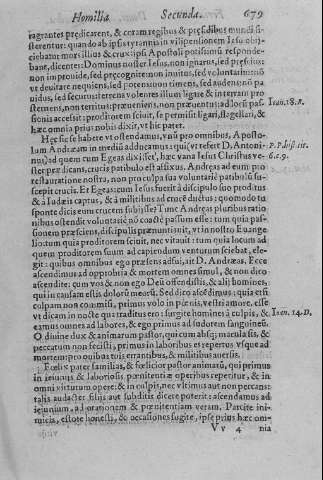 Homilia Secunda. 679
migrantes prędicarent, & coram regibus & pręsidibus mundi si-
sterentur: quando ab ipsis tyrannis in vilipensionem Iesu obij-
ciebatur mors illius & crux: ipsi Apostoli potissimũ responde-
bant, dicentes: Dominus noster Iesus, non ignarus, sed pręscius:
non improuide, sed pręcognitè: non inuitus, sed voluntariè: non
vt deuitare nequiens, sed potens: non timens, sed audens: nõ pa-
uidus, sed securus: terrens volentes illum ligare & interram pro-
sternens, non territus: præueniens, non præuentus: ad locũ pas- Ioan. 18. A.
sionis accessit: proditorem sciuit, se permisit ligari, flagellari, &
hæc omnia prius nobis dixit, vt hic patet.
Hęc sic se habere vt ostendamus, vnũ pro omnibus, Aposto-
lum Andræam in mediũ adducamus: qui (vt refert D. Antoni- P. P. hist. tit.
nus) ad quem cum Egeas dixisset, hæc vana Iesus Christus ve- 6. c. 9.
ster prædicans, crucis patibulo est affixus. Andreas ad eum pro
restauratione nostra, non pro culpa sua voluntariè patibulũ su-
scepit crucis. Et Egeas: cum Iesus fuerit à discipulo suo proditus
& à Iudæis captus, & à militibus ad crucẽ ductus: quomodo tu
sponte dicis eum crucem subijsse? Tunc Andreas pluribus ratio
nibus ostendit voluntariè nõ coactè passum esse: tum quia pas-
sionem præsciens, discipulis prænuntiauit, vt in nostro Euange
lio: tum quia proditorem sciuit, nec vitauit: tum quia locum ad
quem proditorem suum ad capiendum venturum sciebat, ele-
git: quibus omnibus ego præsens adfui, ait D. Andræas. Ecce
ascendimus ad opprobria & mortem omnes simul, & non dico
ascendite: cum vos & non ego Deũ offendistis, & alij homines,
qui in causam estis dolorũ meorũ. Sed dico ascẽdimus: quia etsi
culpam non commisi, primus volo in pœnis, vestri amore, esse
vt dicam in nocte qua traditus ero: surgite homines à culpis, & Ioan. 14. D.
eamus omnes ad labores, & ego primus ad sudorem sanguineũ.
O diuine dux & animarum pastor, qui cum absq; macula sis, &
peccatum non fecisti, primus in laboribus es repertus vsque ad
mortem: pro quibus tuis errantibus, & militibus auersis.
Fœlix pater familias, & fœlicior pastor animarũ, qui primus
in ieiunijs & laboriosis pœnitentiæ operibus repetitur, & in
omni virtutum opere: & in culpis, nec vltimus aut non percans:
talis audacter filijs aut subditis dicere poterit: ascendamus ad
ieiunium, ad orationem & pœnitentiam veram. Parcite ini-
micis, estote honesti, & occasiones fugite, ipse prius hæc om-
V v 4 nia